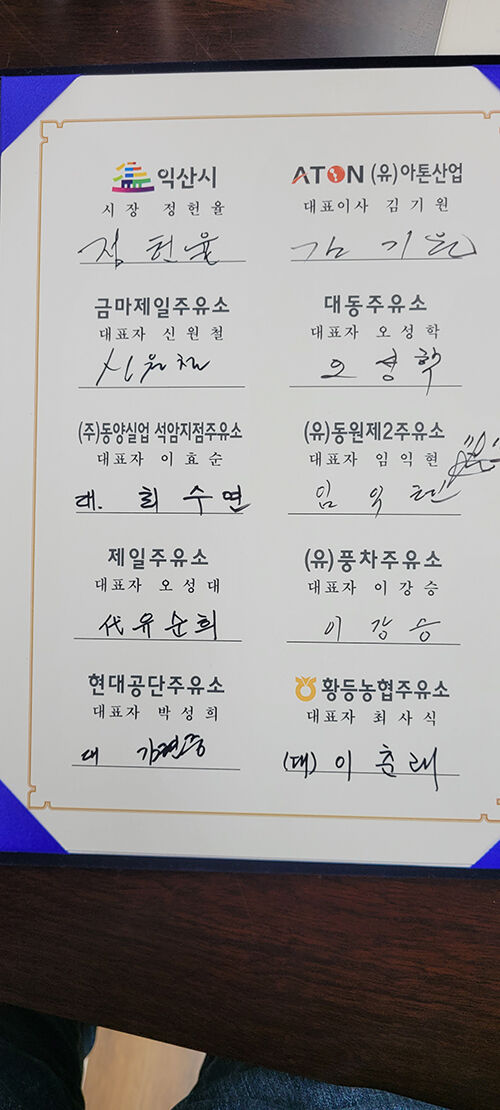 익산시
시장 정헌율
정헌율
ATON (유)아톤산업
대표이사 김기원
김기원
금마제일주유소
대표자 신원철
신원철
대동주유소
대표자 오성학
오성학
(주)동양실업 석암지점주유소
대표자 이효순
대. 최수면
(유)동원제2주유소
대표자 임익현
임익현
제일주유소
대표자 오성대
代 유순희
(유)풍차주유소
대표자 이강승
이강승
현대공단주유소
대표자 박성희
대
황등농협주유소
대표자 최사식
(대) 이춘래